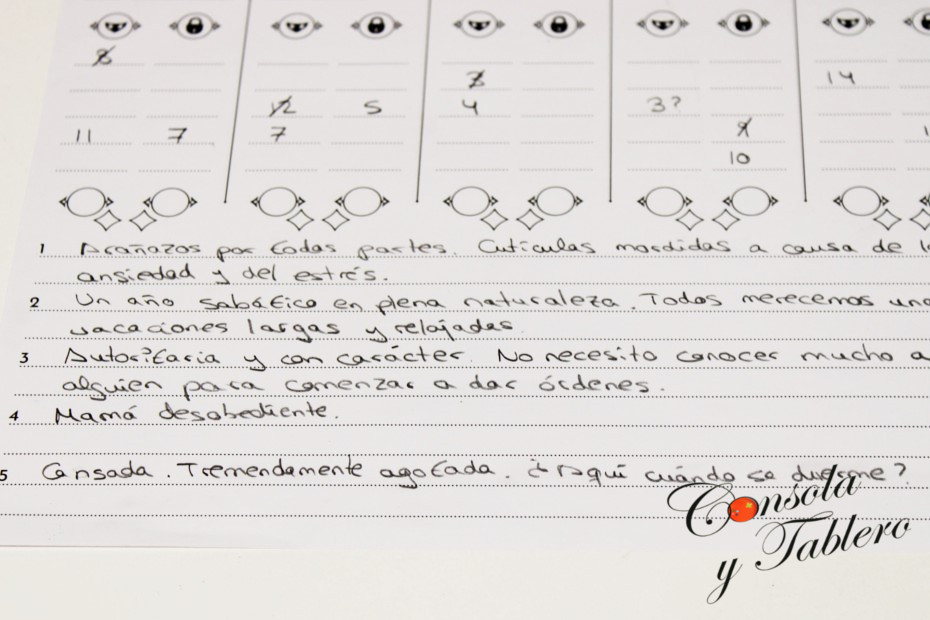 8
3
14
12 5 4 3?
11 7 7 9
10
1 Arañazos por todas partes. Cutículas mordidas a causa de
ansiedad y del estrés.
2 Un año sabático en plena naturaleza. Todos merecemos
vacaciones largas y relajadas
3 Autoritaria y con carácter. No necesito conocer mucho a
alguien para comenzar a dar órdenes.
4 Mamá desobediente.
5 Cansada. Tremendamente agotada. ¿Aquí cuándo se duerme?
Consola
y Tablero